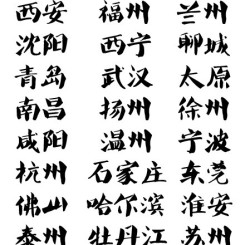 西安 福州 兰州
沈阳 西宁 聊城
青岛 武汉 太原
南昌 扬州 徐州
咸阳 温州 宁波
杭州 石家庄 东莞
佛山 哈尔滨 淮安
泰州 牡丹江 苏州